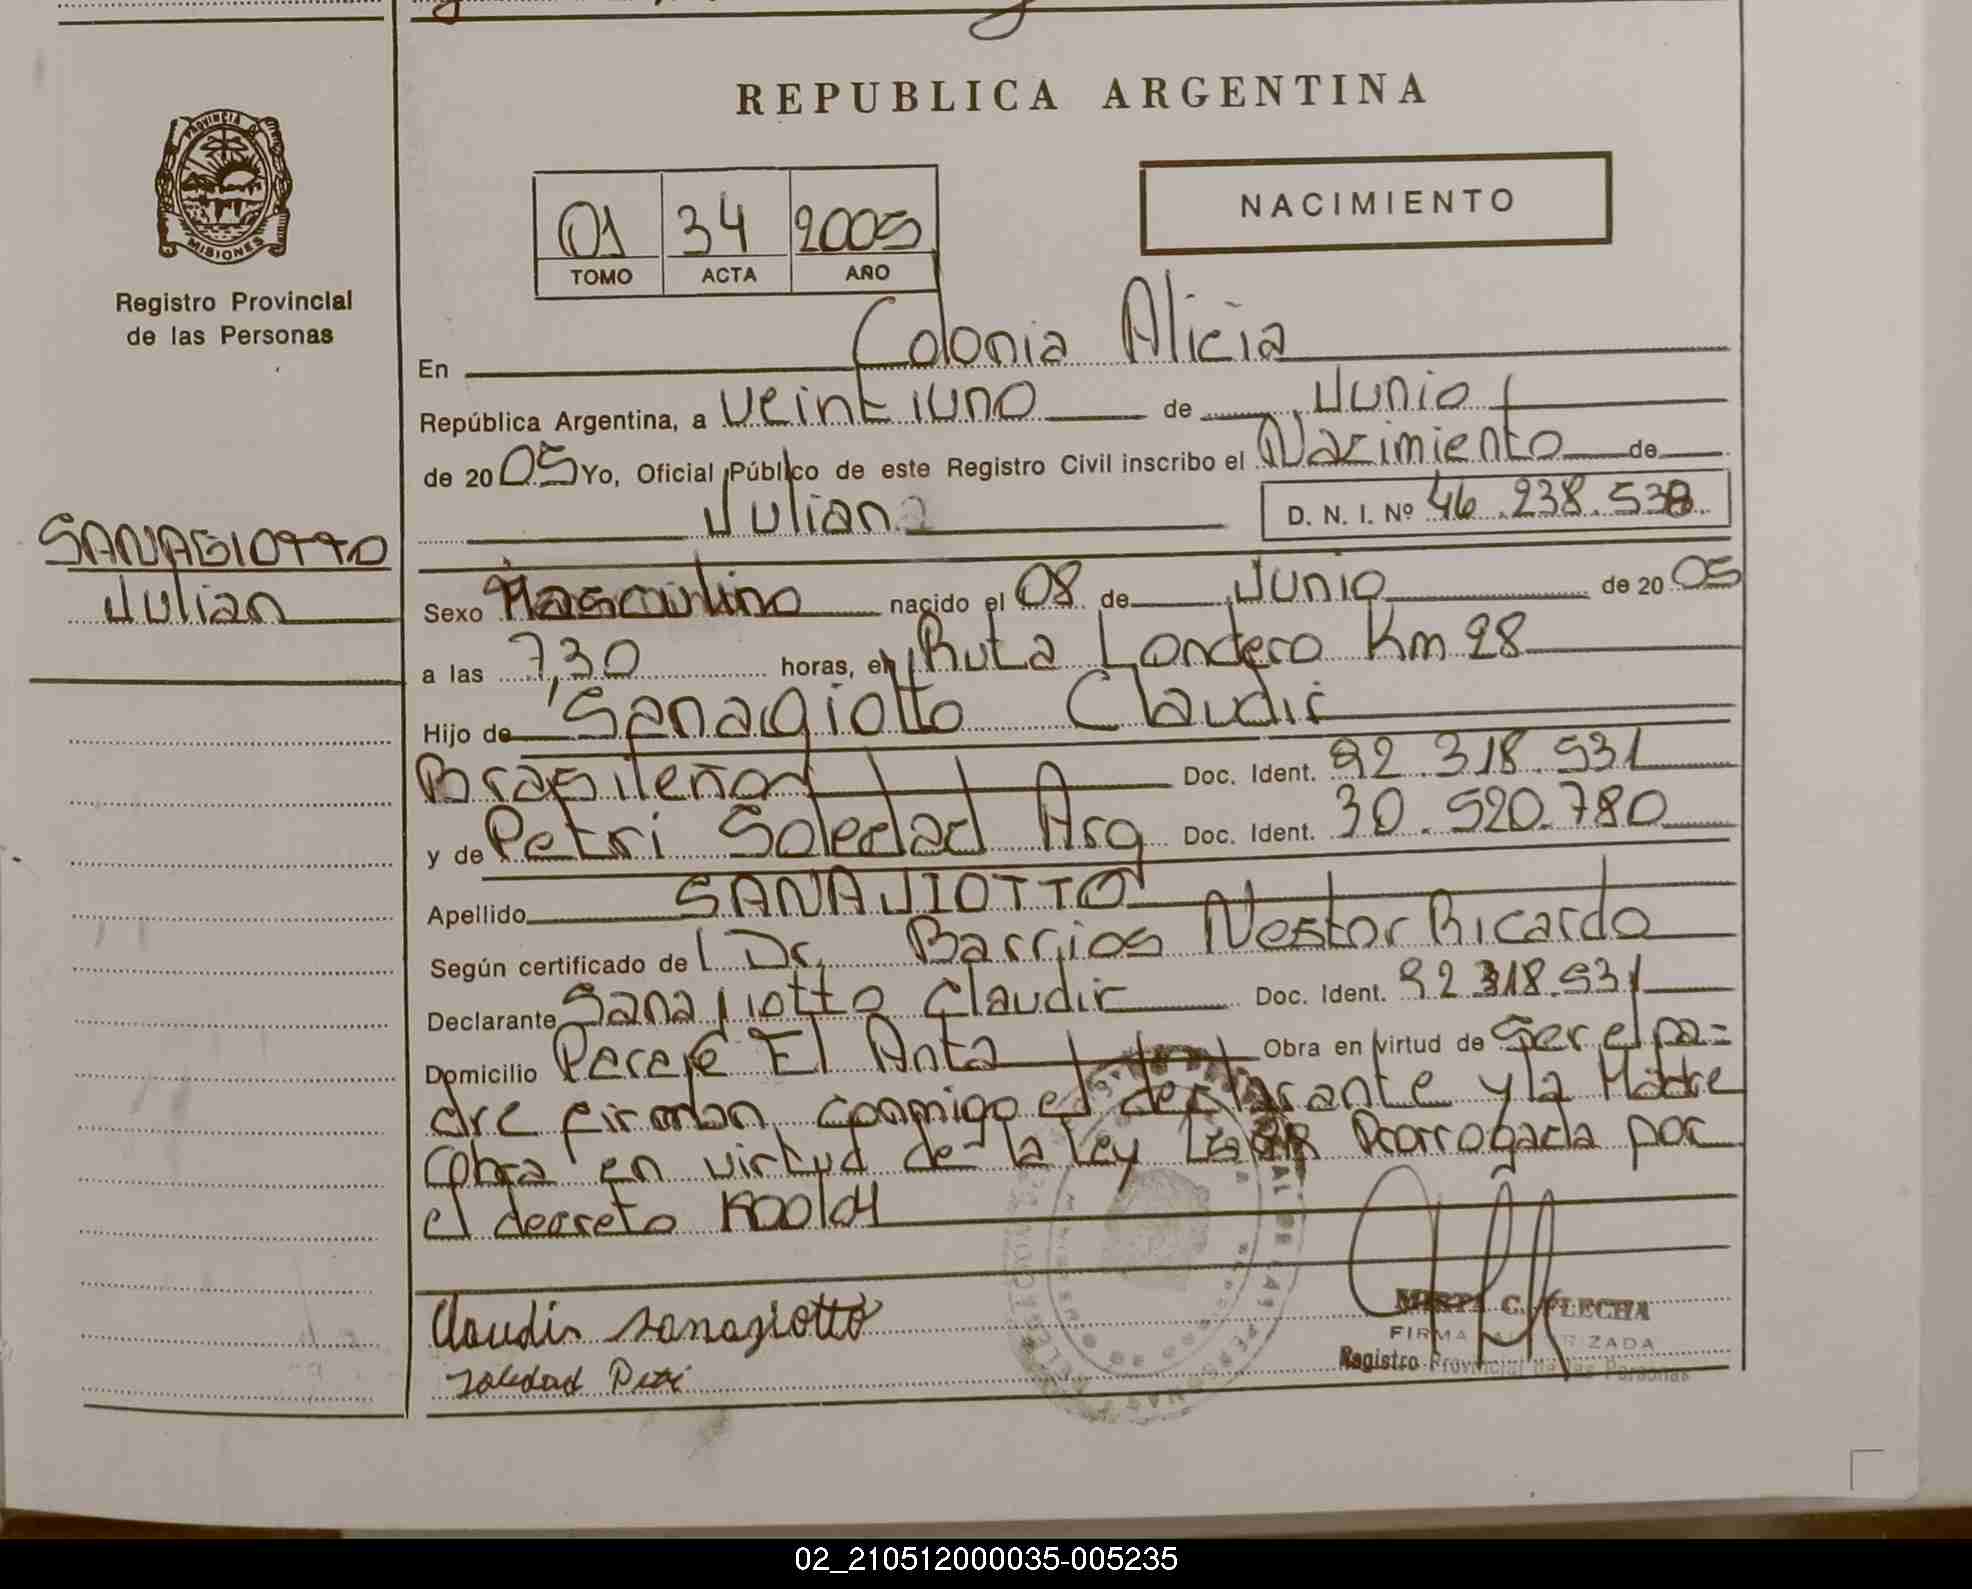 REPUBLICA ARGENTINA
PROVINCIA DE
MISIONES
Registro Provincial
de las Personas
NACIMIENTO
01 34 2005
TOMO ACTA AÑO
En Colonia Alicia
República Argentina, a veintiuno de Junio
de 2005 Yo, Oficial Público de este Registro Civil inscribo el Nacimiento de
Julian
D. N. I. Nº 46.238.538
SANAGIOTTO
Julian
Sexo Masculino nacido el 08 de Junio de 2005
a las 7,30 horas, en Ruta Londero Km 28
Hijo de Sanagiotto Claudir
Brasileño Doc. Ident. 92.318.531
y de Petri Soledad Arg Doc. Ident. 30.520.780
Apellido SANAJIOTTO
Según certificado de l Dr. Barrios Nestor Ricardo
Declarante Sanagiotto Claudir Doc. Ident. 92.318.531
Domicilio Paraje El Anta Obra en virtud de Ser el pa=
dre firman conmigo el declarante y la Madre
obra en virtud de la ley Prorrogada por
el decreto
Claudir Sanagiotto
Soledad Petri
C. FLECHA
FIRMA AUTORIZADA
Registro Provincial de las Personas
02_210512000035-005235